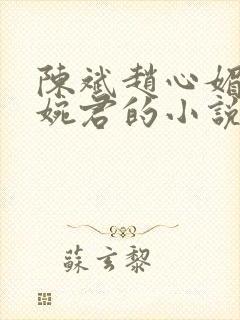 陳斌趙心媚
婉君的小說
蘇玄黎